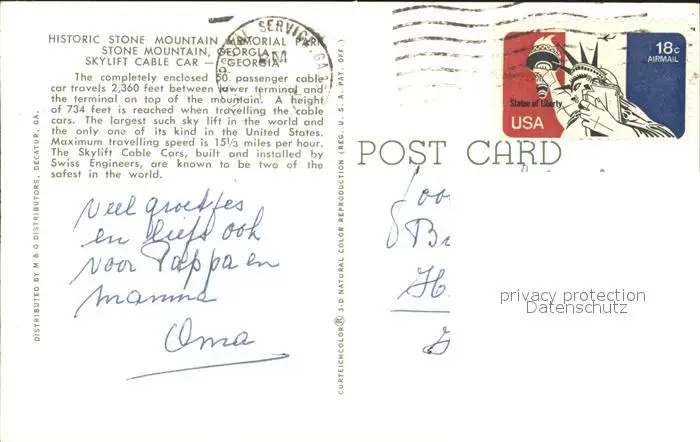 HISTORIC STONE MOUNTAIN MEMORIAL PARK
STONE MOUNTAIN, GEORGIA
SKYLIFT CABLE CAR — GEORGIA
The completely enclosed 50 passenger cable
car travels 2,360 feet between lower terminal and
the terminal on top of the mountain. A height
of 734 feet is reached when travelling the cable
cars. The largest such sky lift in the world and
the only one of its kind in the United States.
Maximum travelling speed is 15⅓ miles per hour.
The Skylift Cable Cars, built and installed by
Swiss Engineers, are known to be two of the
safest in the world.
Veel groetjes
en liefs ook
voor Pappa en
mamma
Oma
DISTRIBUTED BY M & O DISTRIBUTORS, DECATUR, GA.
CURTEICHCOLOR® 3-D NATURAL COLOR REPRODUCTION (REG. U. S. A. PAT. OFF.)
SERVICE, GA
AM
18c
AIRMAIL
Statue of Liberty
USA
POST CARD
Br
H.
privacy protection
Datenschutz